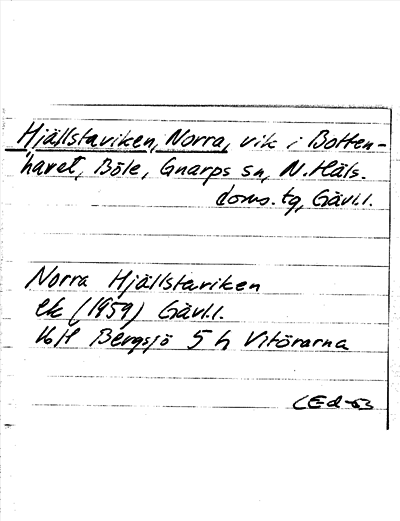 Hjällstaviken, Norra, vik i Botten-
havet, Böle, Gnarps sn, N. Häls.
doms. tg, Gävl.l.
Norra Hjällstaviken
ek (1959) Gävl.l.
Bergsjö 5 h Vitörarna
CEd-63